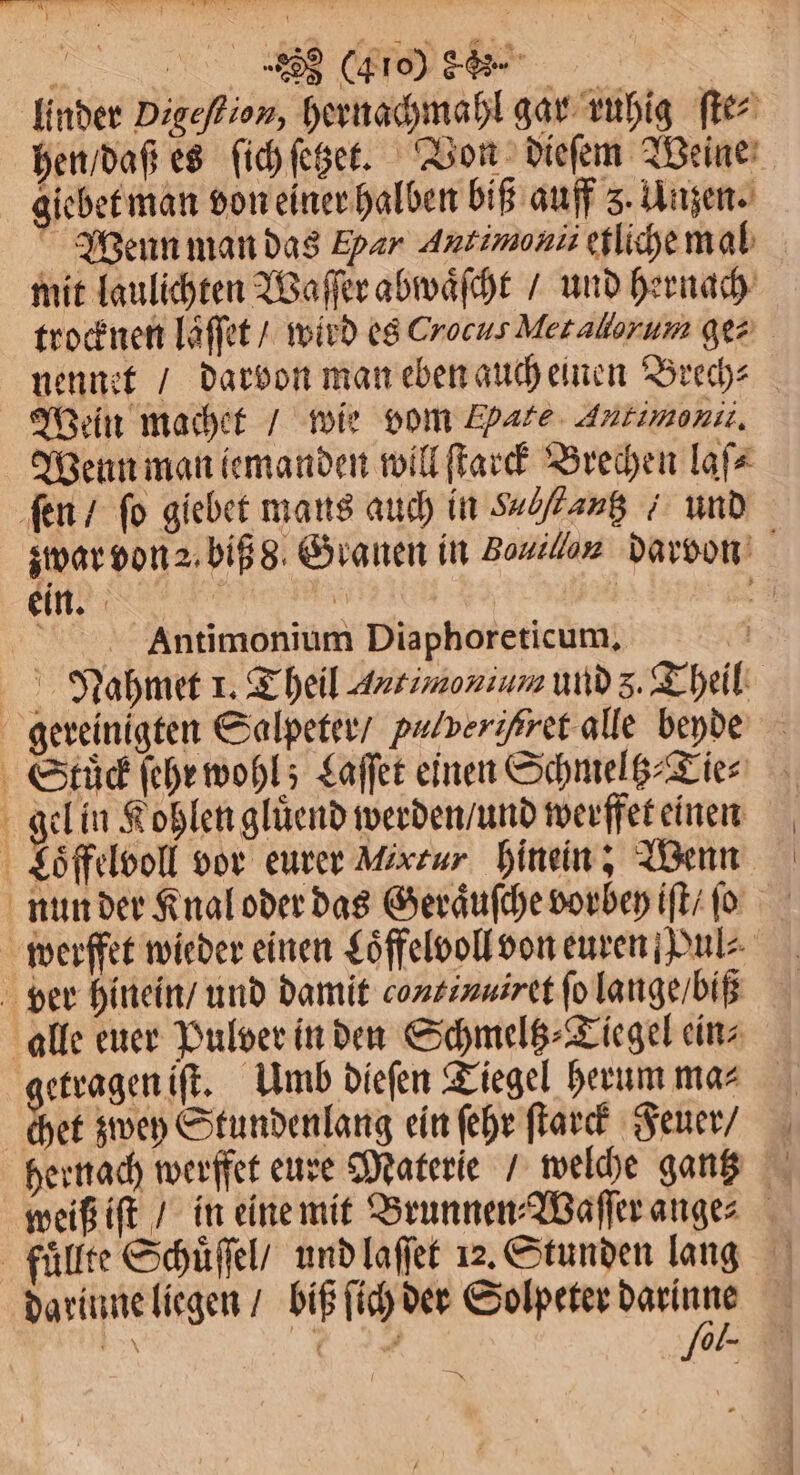 (410)
linder Digeſtion, hernachmahl gar ruhig ſte⸗
hen/daß es ſich ſetzet. Von dieſem Weine
giebet man von einer halben biß auff 3. Unzen.
Wenn man das Epar Antimonii etliche mal
mit laulichten Waſſer abwaͤſcht / und hernach
trocknen laͤſſet / wird es Crocus Metallorum ge⸗
nennet / darvon man eben auch einen Brech⸗
Wein machet / wie vom Epate Antimonii.
Wenn man iemanden will ſtarck Brechen laſ⸗
ſen / ſo giebet mans auch in Subſtantz / und
zwar von 2. biß 8. Granen in Bouillon darvon
ein.
Antimonium Diaphoreticum.
Nahmet 1. Theil Antimonium und 3. Theil
gereinigten Salpeter/ pulveriſiret alle beyde
Stuͤck ſehr wohl; Laſſet einen Schmeltz⸗Tie⸗
gel in Kohlen gluͤend werden/und werffet einen
Loͤffelvoll vor eurer Mixtur hinein; Wenn
nun der Knal oder das Geraͤuſche vorbey iſt/ ſo
werffet wieder einen Loͤffelvoll von euren Pul⸗
ver hinein/ und damit continuiret ſo lange/biß
alle euer Pulver in den Schmeltz⸗Tiegel ein⸗
getragen iſt. Umb dieſen Tiegel herum ma⸗
chet zwey Stundenlang ein ſehr ſtarck Feuer/
hernach werffet eure Materie / welche gantz
weiß iſt / in eine mit Brunnen⸗Waſſer ange⸗
fuͤllte Schuͤſſel/ und laſſet 12. Stunden lang
darinne liegen / biß ſich der Solpeter darinne
ſol-